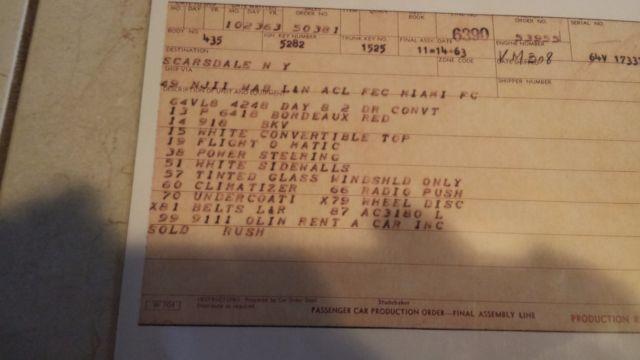 MO. DAY YR. MO. DAY YR. ORDER NO. BOOK ORDER NO. SERIAL NO.
102363 50381 6390 53955
BODY NO. IGN. KEY NUMBER TRUNK KEY NO. FINAL ASSY. DATE ENGINE NUMBER
435 5282 1525 11-14-63 64V 1733
DESTINATION ZONE CODE
SCARSDALE N Y
SHIP VIA SHIPPER NUMBER
ACL FEC MIAMI FC
64VL8 4248 DAY 8 2 DR CONVT
13 P 6418 BORDEAUX RED
14 918 BKV
15 WHITE CONVERTIBLE TOP
19 FLIGHT O MATIC
38 POWER STEERING
51 WHITE SIDEWALLS
57 TINTED GLASS WINDSHLD ONLY
60 CLIMATIZER 66 RADIO PUSH
70 UNDERCOATI X79 WHEEL DISC
X81 BELTS L&R 87 AC3180 L
99 9111 OLIN RENT A CAR INC
SOLD RUSH
INSTRUCTIONS: Prepared by Car Order Dept.
Distribute as required.
Studebaker
PASSENGER CAR PRODUCTION ORDER—FINAL ASSEMBLY LINE
PRODUCTION